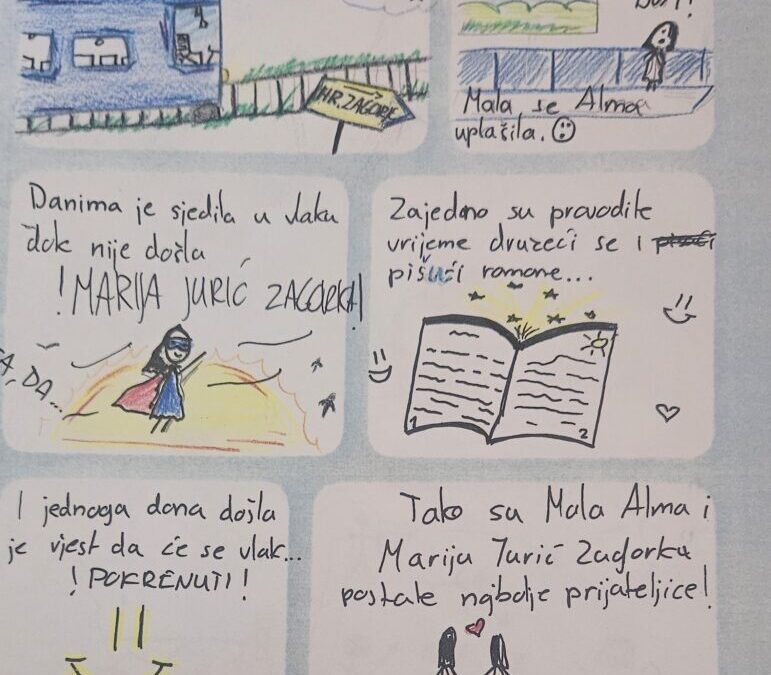 HR.ZAGORJE
Mala se Alma
uplašila.
Danima je sjedila u vlaku
dok nije došla
!MARIJA JURIĆ ZAGORKA!
DA...
Zajedno su provodile
vrijeme družeći se i
pišući romane...
1
2
I jednoga dana došla
je vjest da će se vlak...
!POKRENUTI!
Tako su Mala Alma i
Marija Jurić Zagorka
postale najbolje prijateljice!